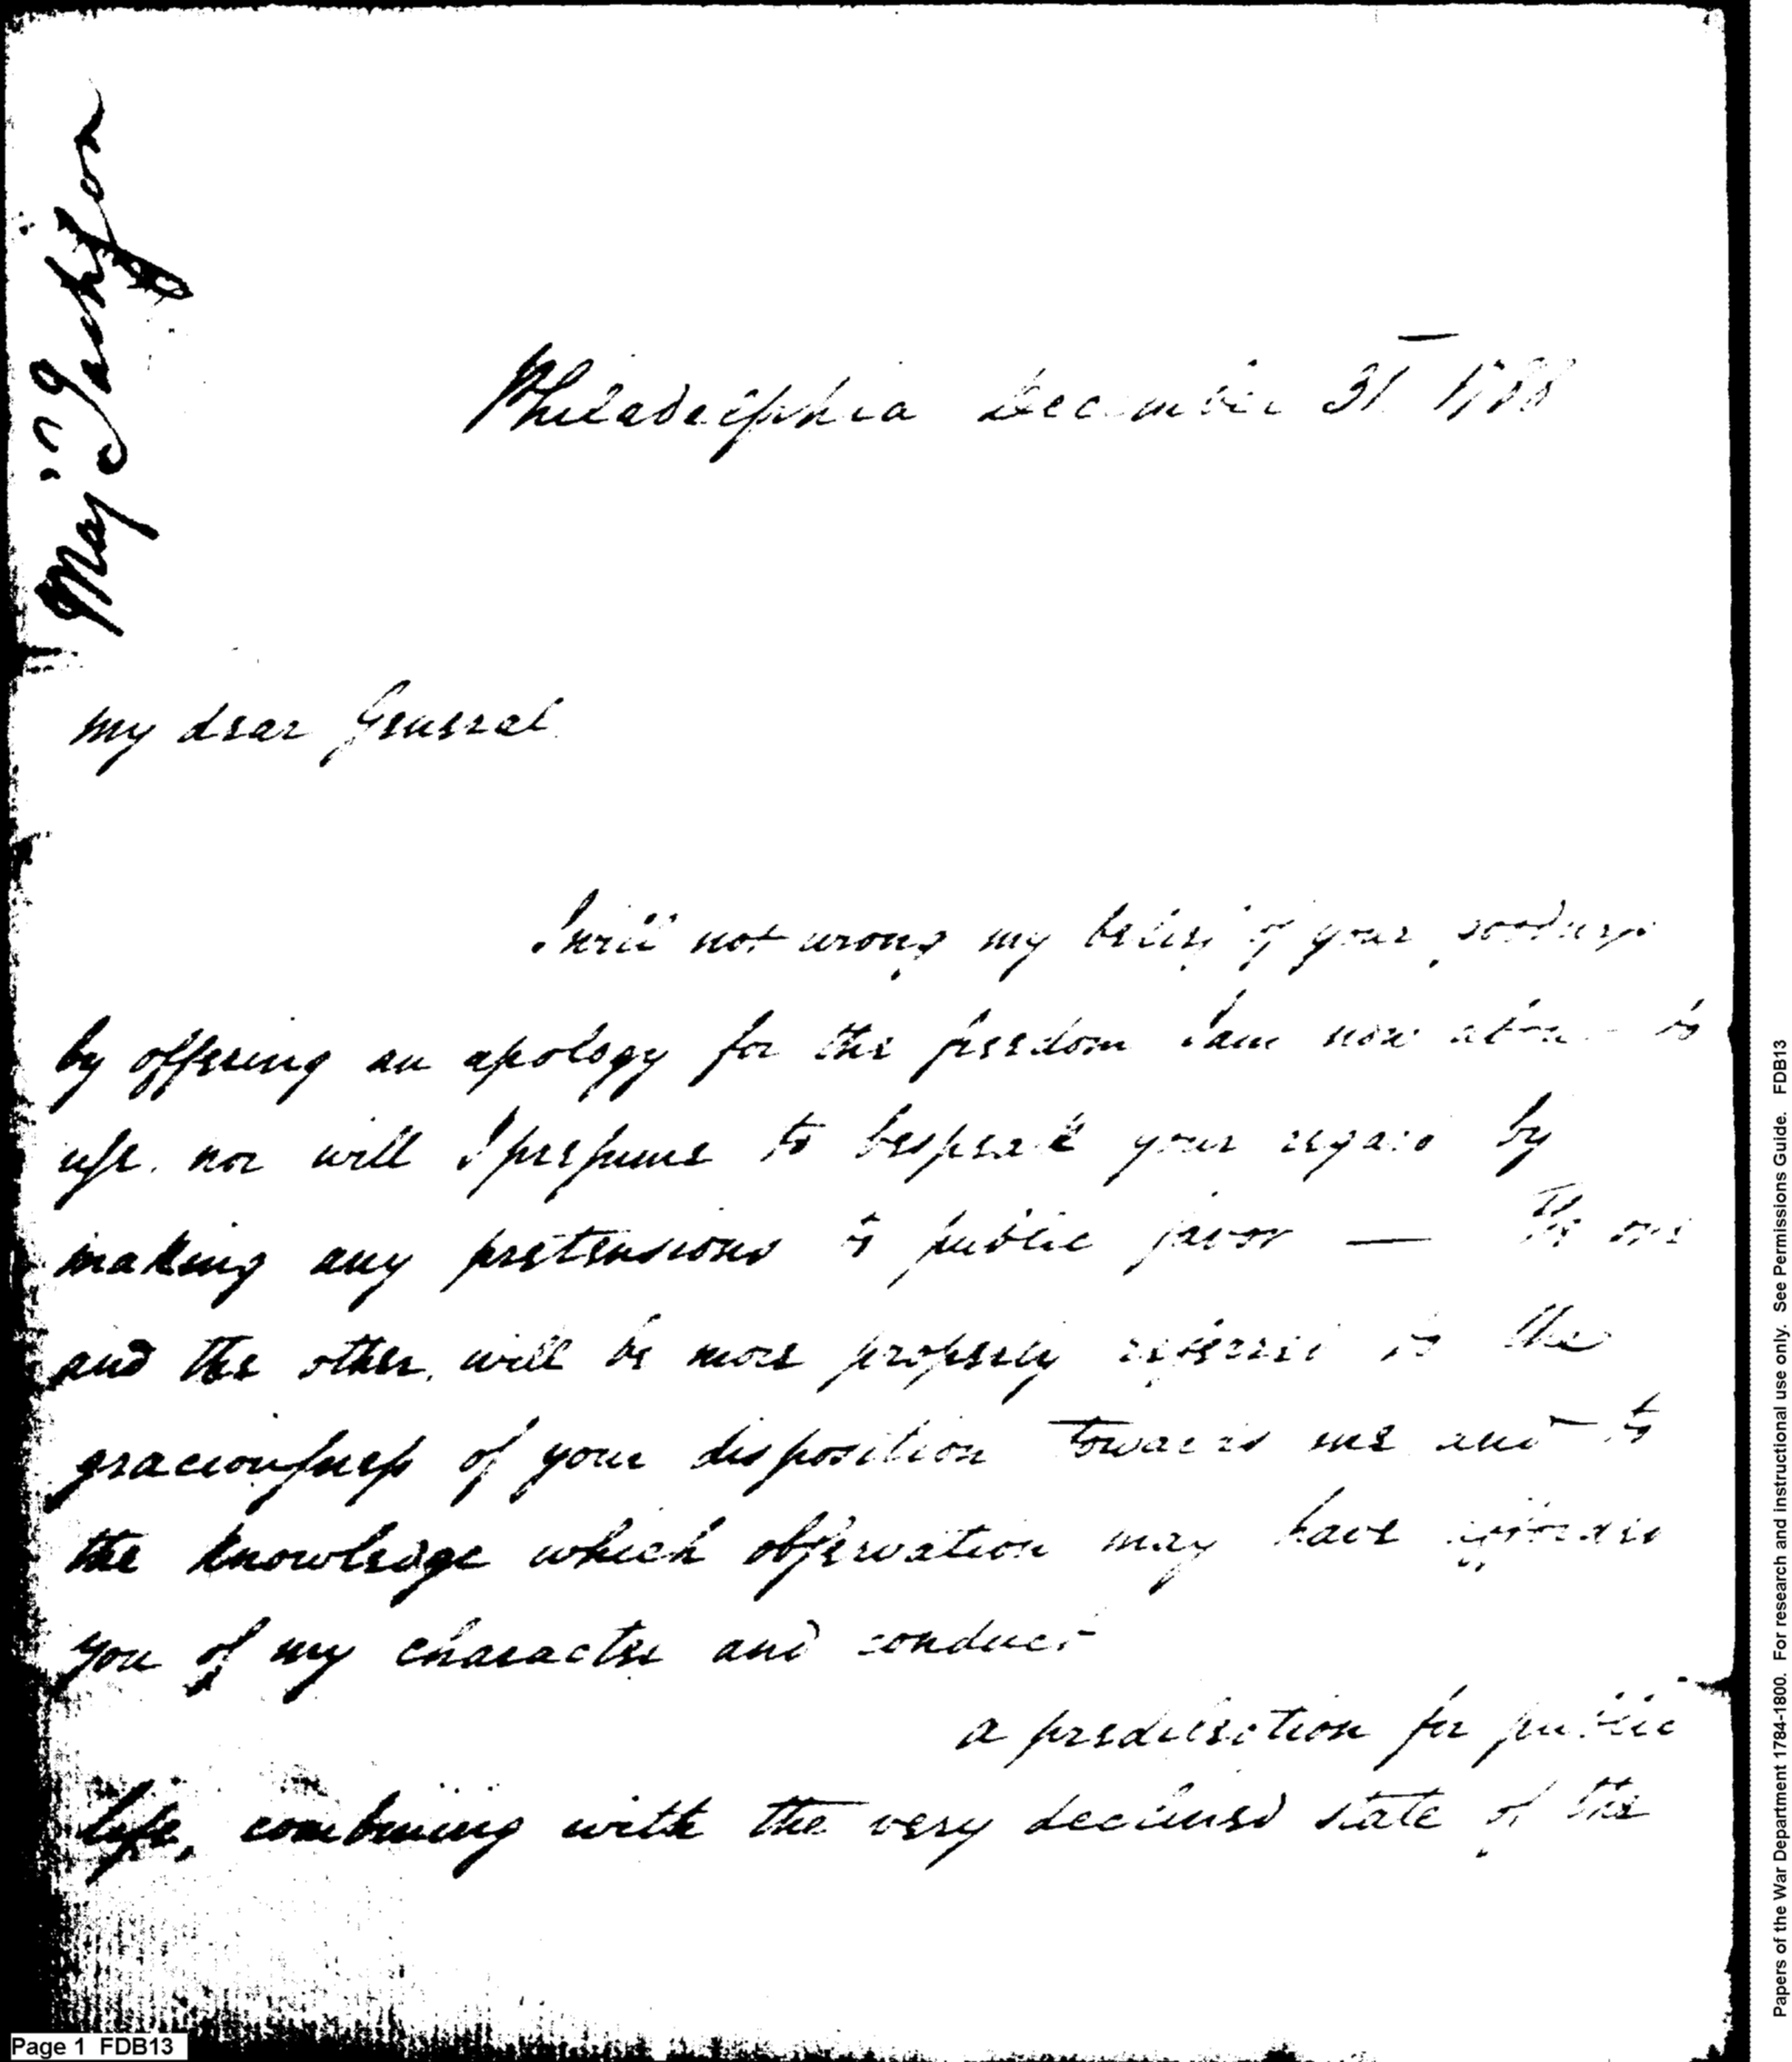 Maj.r Jackson
Philadelphia December 31 1788
My dear General
I will not wrong my belief of your goodness
by offering an apology for the freedom I am now about to
use. nor will I presume to bespeak your regard by
making any pretensions to public favor — The one
and the other, will be more properly referred to the
graciousness of your disposition towards me and to
the knowledge which observation may have afforded
you of my character and conduct
a predilection for public
life, combining with the very declined state of the
Page 1 FDB13
Papers of the War Department 1784-1800. For research and instructional use only. See Permissions Guide. FDB13